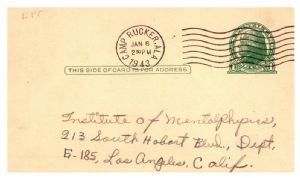 CAMP RUCKER, ALA.
JAN 6
1943
THIS SIDE OF CARD IS FOR ADDRESS
Institute of Mentalphysics,
213 South Hobart Blvd., Dept.
E-185, Los Angeles, Calif.